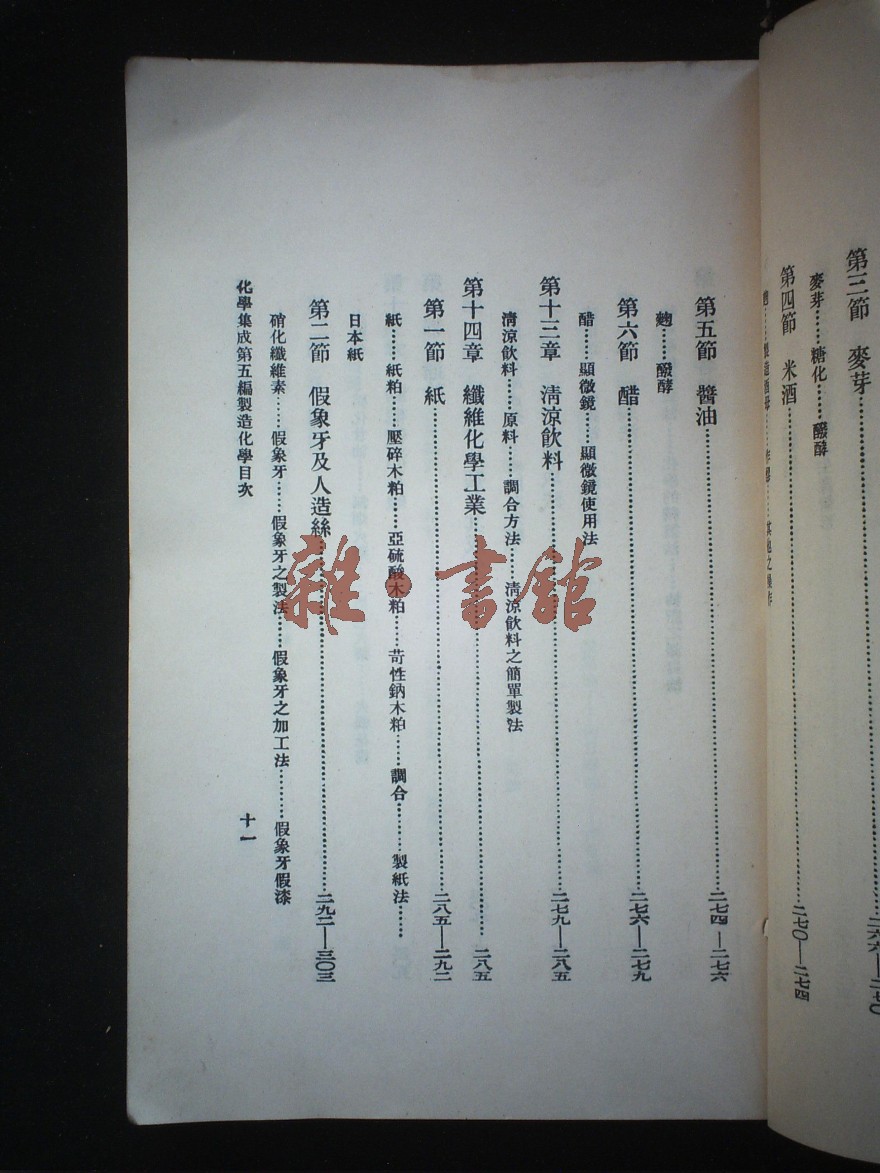 第三節　麥芽………二六六—二七〇
麥芽………糖化………醱酵
第四節　米酒………二七〇—二七四
其他之操作
第五節　醬油………二七四—二七六
麴………醱酵
第六節　醋………二七六—二七九
醋………顯微鏡………顯微鏡使用法
第十三章　淸涼飲料………二七九—二八五
淸涼飲料………原料………調合方法………淸涼飲料之簡單製法
第十四章　纖維化學工業………二八五
第一節　紙………二八五—二九二
紙………紙粕………壓碎木粕………亞硫酸木粕………苛性鈉木粕………調合………製紙法………
日本紙
第二節　假象牙及人造絲………二九二—三〇三
硝化纖維素………假象牙………假象牙之製法………假象牙之加工法………假象牙假漆
化學集成第五編製造化學目次
十一
雜·書館